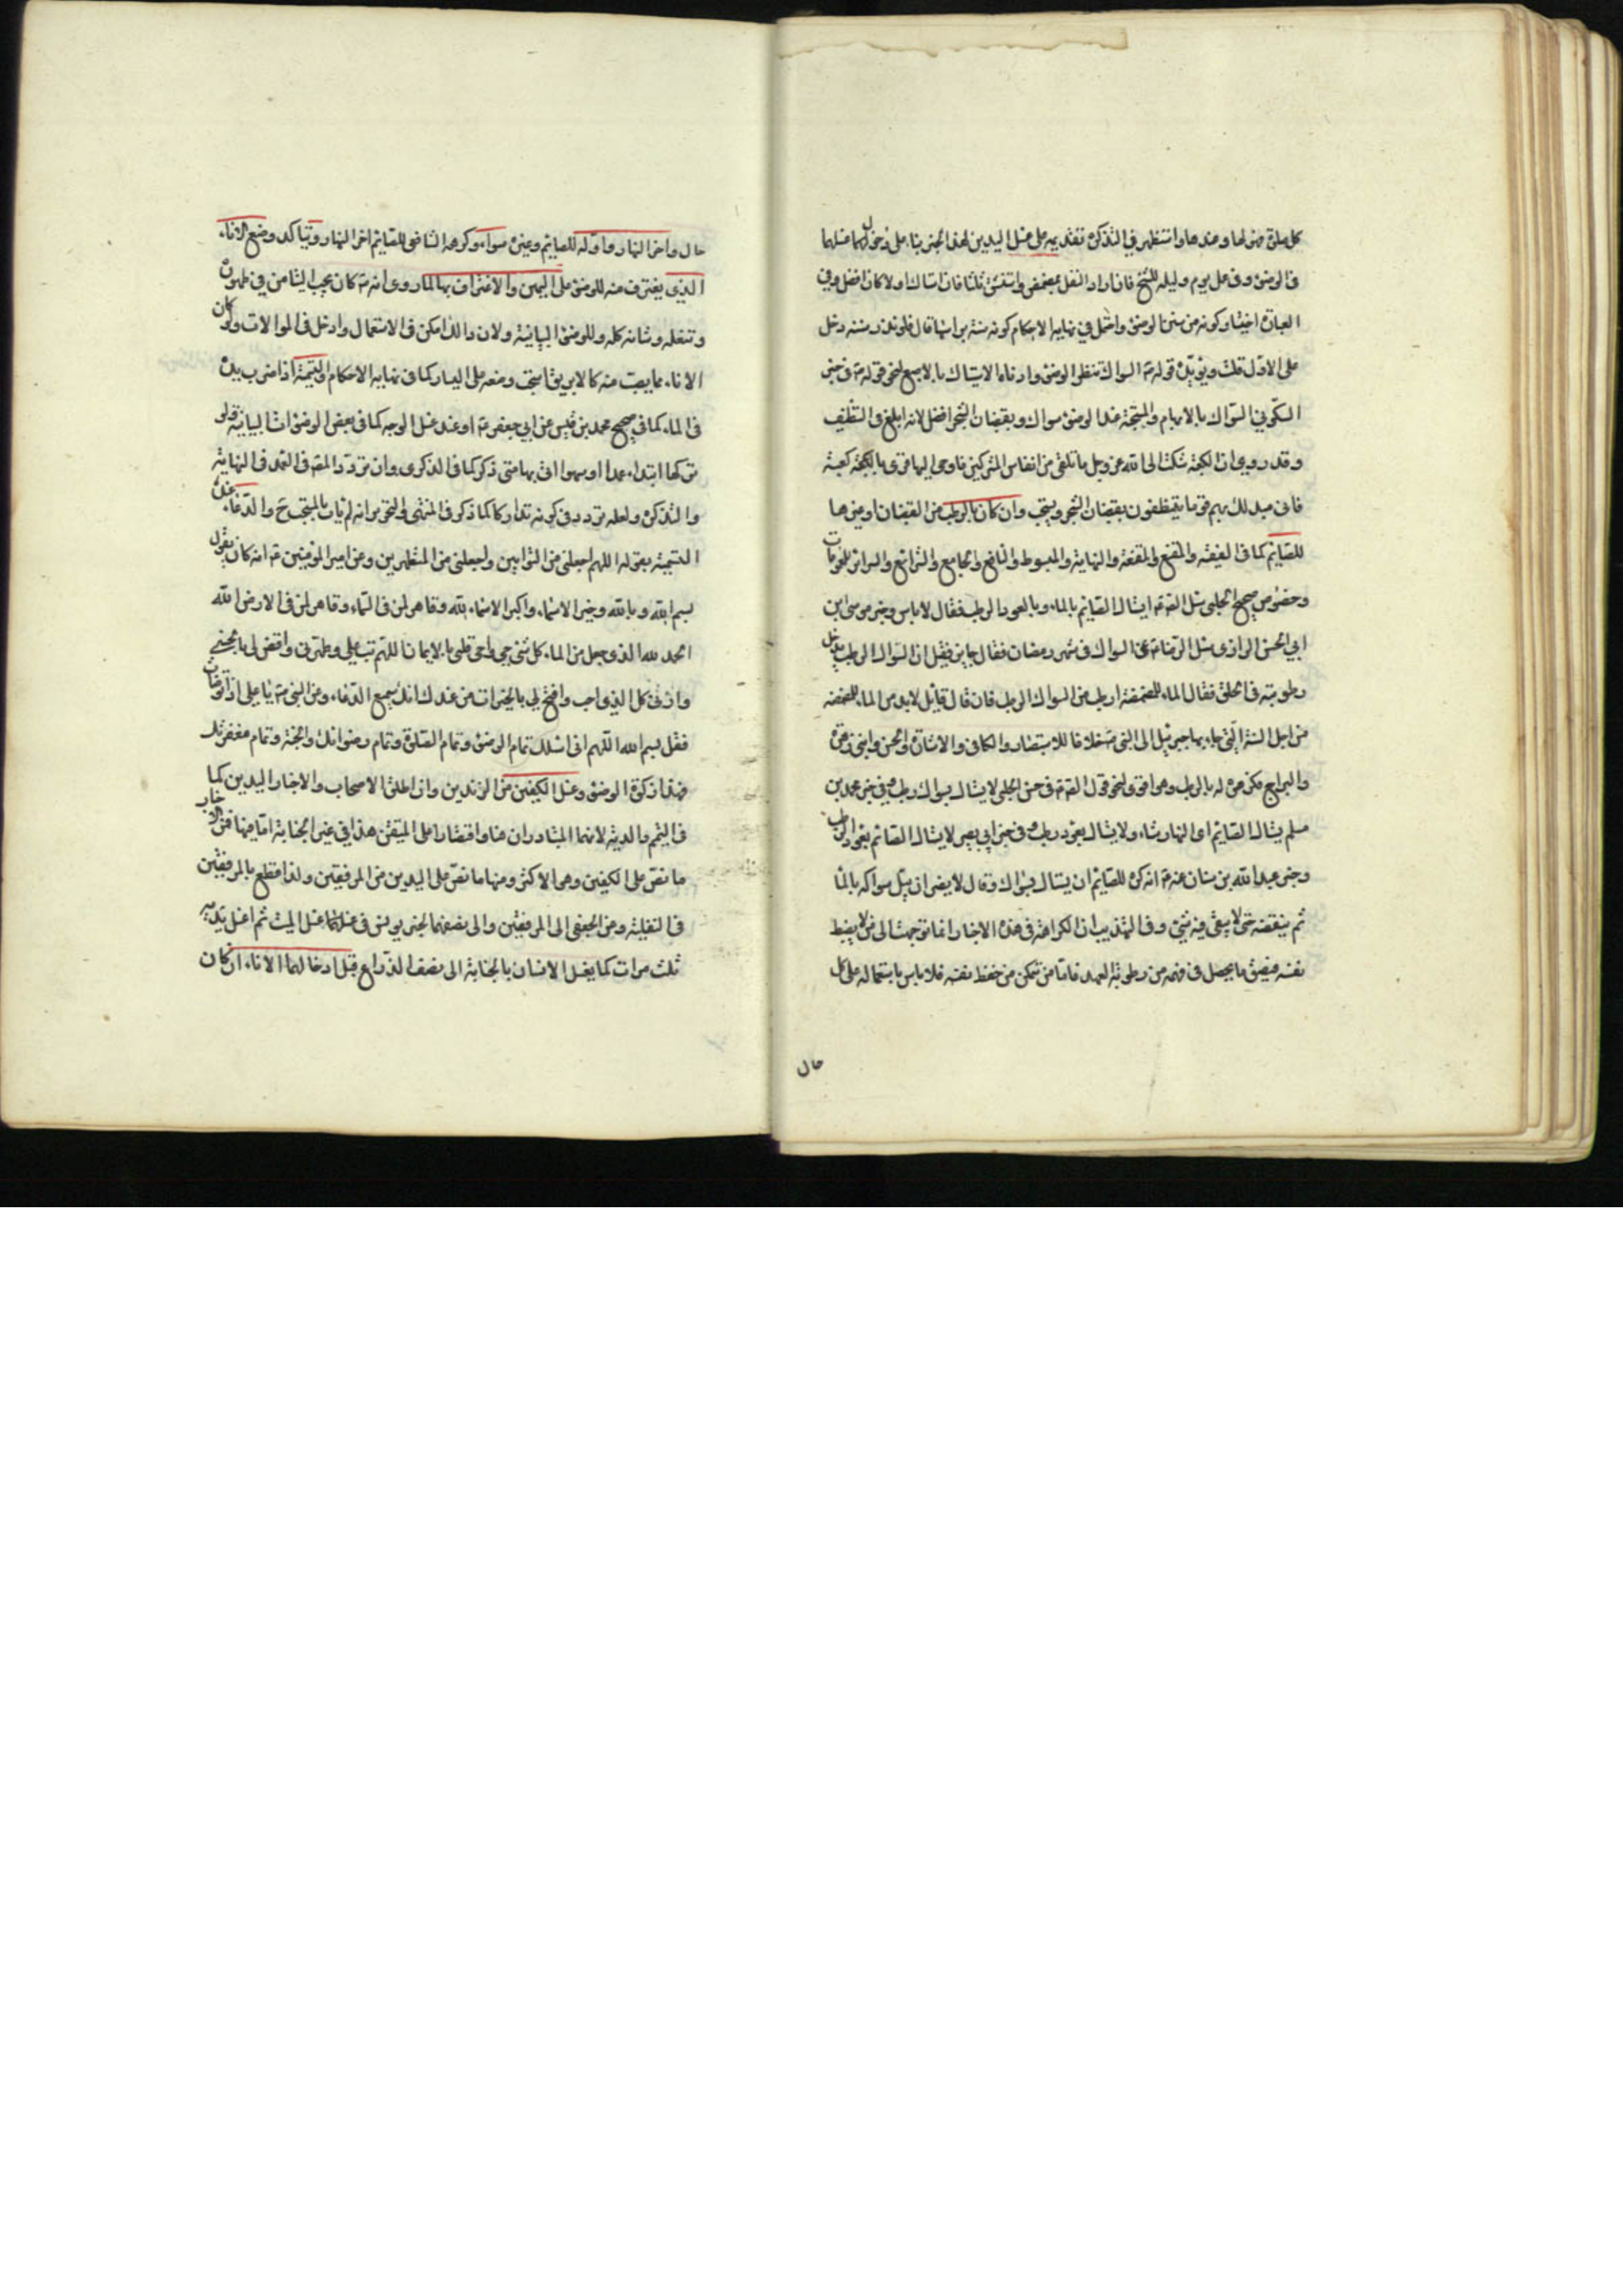 كل صلوة صحّ لها وعندها واستظهر في التذكرة تقديمه على غسل اليدين لهذا الخبر بناء على دخولهما
في الوضوء وفي عمل يوم وليلة للشيخ فان اراد النفل تمضمض واستنشق ثلثا فان استاك اولا كان افضل وفي
العبارة اختيار كونه من سنن الوضوء واحتمل في نهاية الاحكام كونه سنة براسها قال فلو نذر سننه دخل
على الاول قلت ويؤيده قوله ع السواك شطر الوضوء وادناه الاستياك بالاصبع لنحو قوله ع في خبر
السكوني السواك بالابهام والمسبحة عند الوضوء سواك وبقضبان الشجر افضل لانه ابلغ في التنظيف
وقد روي ان الكعبة شكت الى الله عز وجل ما تلقى من انفاس المشركين فاوحى اليها قري يا كعبة
فاني مبدلك بهم قوما يتنظفون بقضبان الشجر ويستحب وان كان بالرطب من القضبان او غيرها
للصايم كما في الفقيه والمقنع والمقنعة والنهاية والمبسوط والنافع والجامع والشرائع والسرائر للعمومات
وخصوص صحيح الحلبي سئل الصادق ع ايستاك الصايم بالماء وبالعود الرطب فقال لا باس وخبر موسى بن
ابي الحسن الرازي سئل الرضا ع عن السواك في شهر رمضان فقال جايز فقيل ان السواك الرطب يدخل
رطوبته في الحلق فقال الماء للمضمضة ارطب من السواك الرطب فان قال قائل لا بد من الماء للمضمضة
من اجل السنة التي جاء بها جبرئيل الى النبي ص خلافا للاستبصار والكافي والاشارة والحسن وابني زهرة
والبراج فكرهوه له بالرطب وهو اقوى لنحو قول الصادق ع في حسن الحلبي لا يستاك بسواك رطب وفي خبر محمد بن
مسلم يستاك الصايم اى النهار شاء ولا يستاك بعود رطب وفي خبر ابي بصير لا يستاك الصائم بعود رطب
وخبر عبد الله بن سنان عنه ع انه كره للصايم ان يستاك بسواك وقال لا يضر ان يبل سواكه بالماء
ثم ينفضه حتى لا يبقى فيه شيء وفي التهذيب ان الكراهة في هذه الاخبار انما توجهت الى من لا يضبط
نفسه فيبصق ما يحصل في فمه من رطوبة العود فاما من تمكن من حفظ نفسه فلا باس باستعماله على كل
حال
حال واخر النهار واوله للصايم وغيره سواء وكرهه الشافعي للصايم اخر النهار ويتاكد وضع الاناء
الذي يغترف منه للوضوء على اليمين والاغتراف بها لما روى انه ع كان يحب التيامن في طهوره
وتنعله وشانه كله وللوضوء البيانية ولان ذلك امكن في الاستعمال وادخل في الموالات ولو كان
الاناء مما يصب منه كالابريق استحب وضعه على اليسار كما في نهاية الاحكام والتسمية اذا ضرب يده
في الماء كما في صحيح محمد بن قيس عن ابي جعفر ع او عند غسل الوجه كما في بعض الوضوءات البيانية فلو
تركها ابتداء عمدا او سهوا اتى بها متى ذكر كما في الذكرى وان تردد المصنف في العمد في النهاية
والتذكرة ولعله تردد في كونه تداركا كما ذكر في المنتهى والتحرير انه لم يات بالمستحب ح والدعاء عند
التسمية بقوله اللهم اجعلني من التوابين واجعلني من المتطهرين وعن امير المؤمنين ع انه كان يقول
بسم الله وبالله وخير الاسماء واكبر الاسماء لله وقاهر لمن في السماء وقاهر لمن في الارض الله
الحمد لله الذي جعل من الماء كل شيء حي واحيى قلبي بالايمان اللهم تب علي وطهرني واقض لي بالحسنى
وارني كل الذي احب وافتح لي بالخيرات من عندك انك سميع الدعاء وعن النبي ص يا علي اذا توضات
فقل بسم الله اللهم اني اسئلك تمام الوضوء وتمام الصلوة وتمام رضوانك والجنة وتمام مغفرتك
فهذا زكوة الوضوء وغسل الكفين من الزندين وان اطلق الاصحاب والاخبار اليدين كما
في التيمم والدية لانهما المتبادران هنا واقتصارا على المتيقن هذا في غير الجنابة اما فيها فمن الاخبار
ما نص على الكفين وهو الاكثر ومنها ما نص على اليدين من المرفقين ولذا قطع بالمرفقين
في النفلية وعن الجعفي الى المرفقين والى نصفهما لخبر يونس في غسلهما غسل الميت ثم اغسل يديه
ثلث مرات كما يغسل الانسان بالجنابة الى نصف الذراع قبل ادخالهما الاناء ان كان